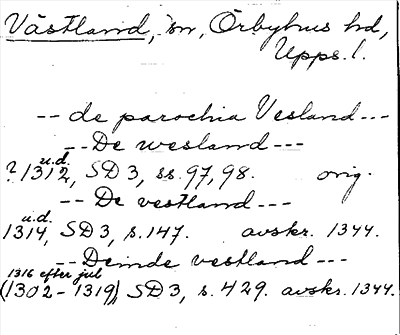 Västland, sn, Örbyhus hd,
Upps. l.
-- de parochia Vesland ---
-- De wesland ---
u.d.
? 1312, SD 3, ss. 97, 98. orig.
-- De vestland ---
u.d.
1314, SD 3, s. 147. avskr. 1344.
-- Deinde vestland ---
1316 efter jul
(1302 - 1319), SD 3, s. 429. avskr. 1344.